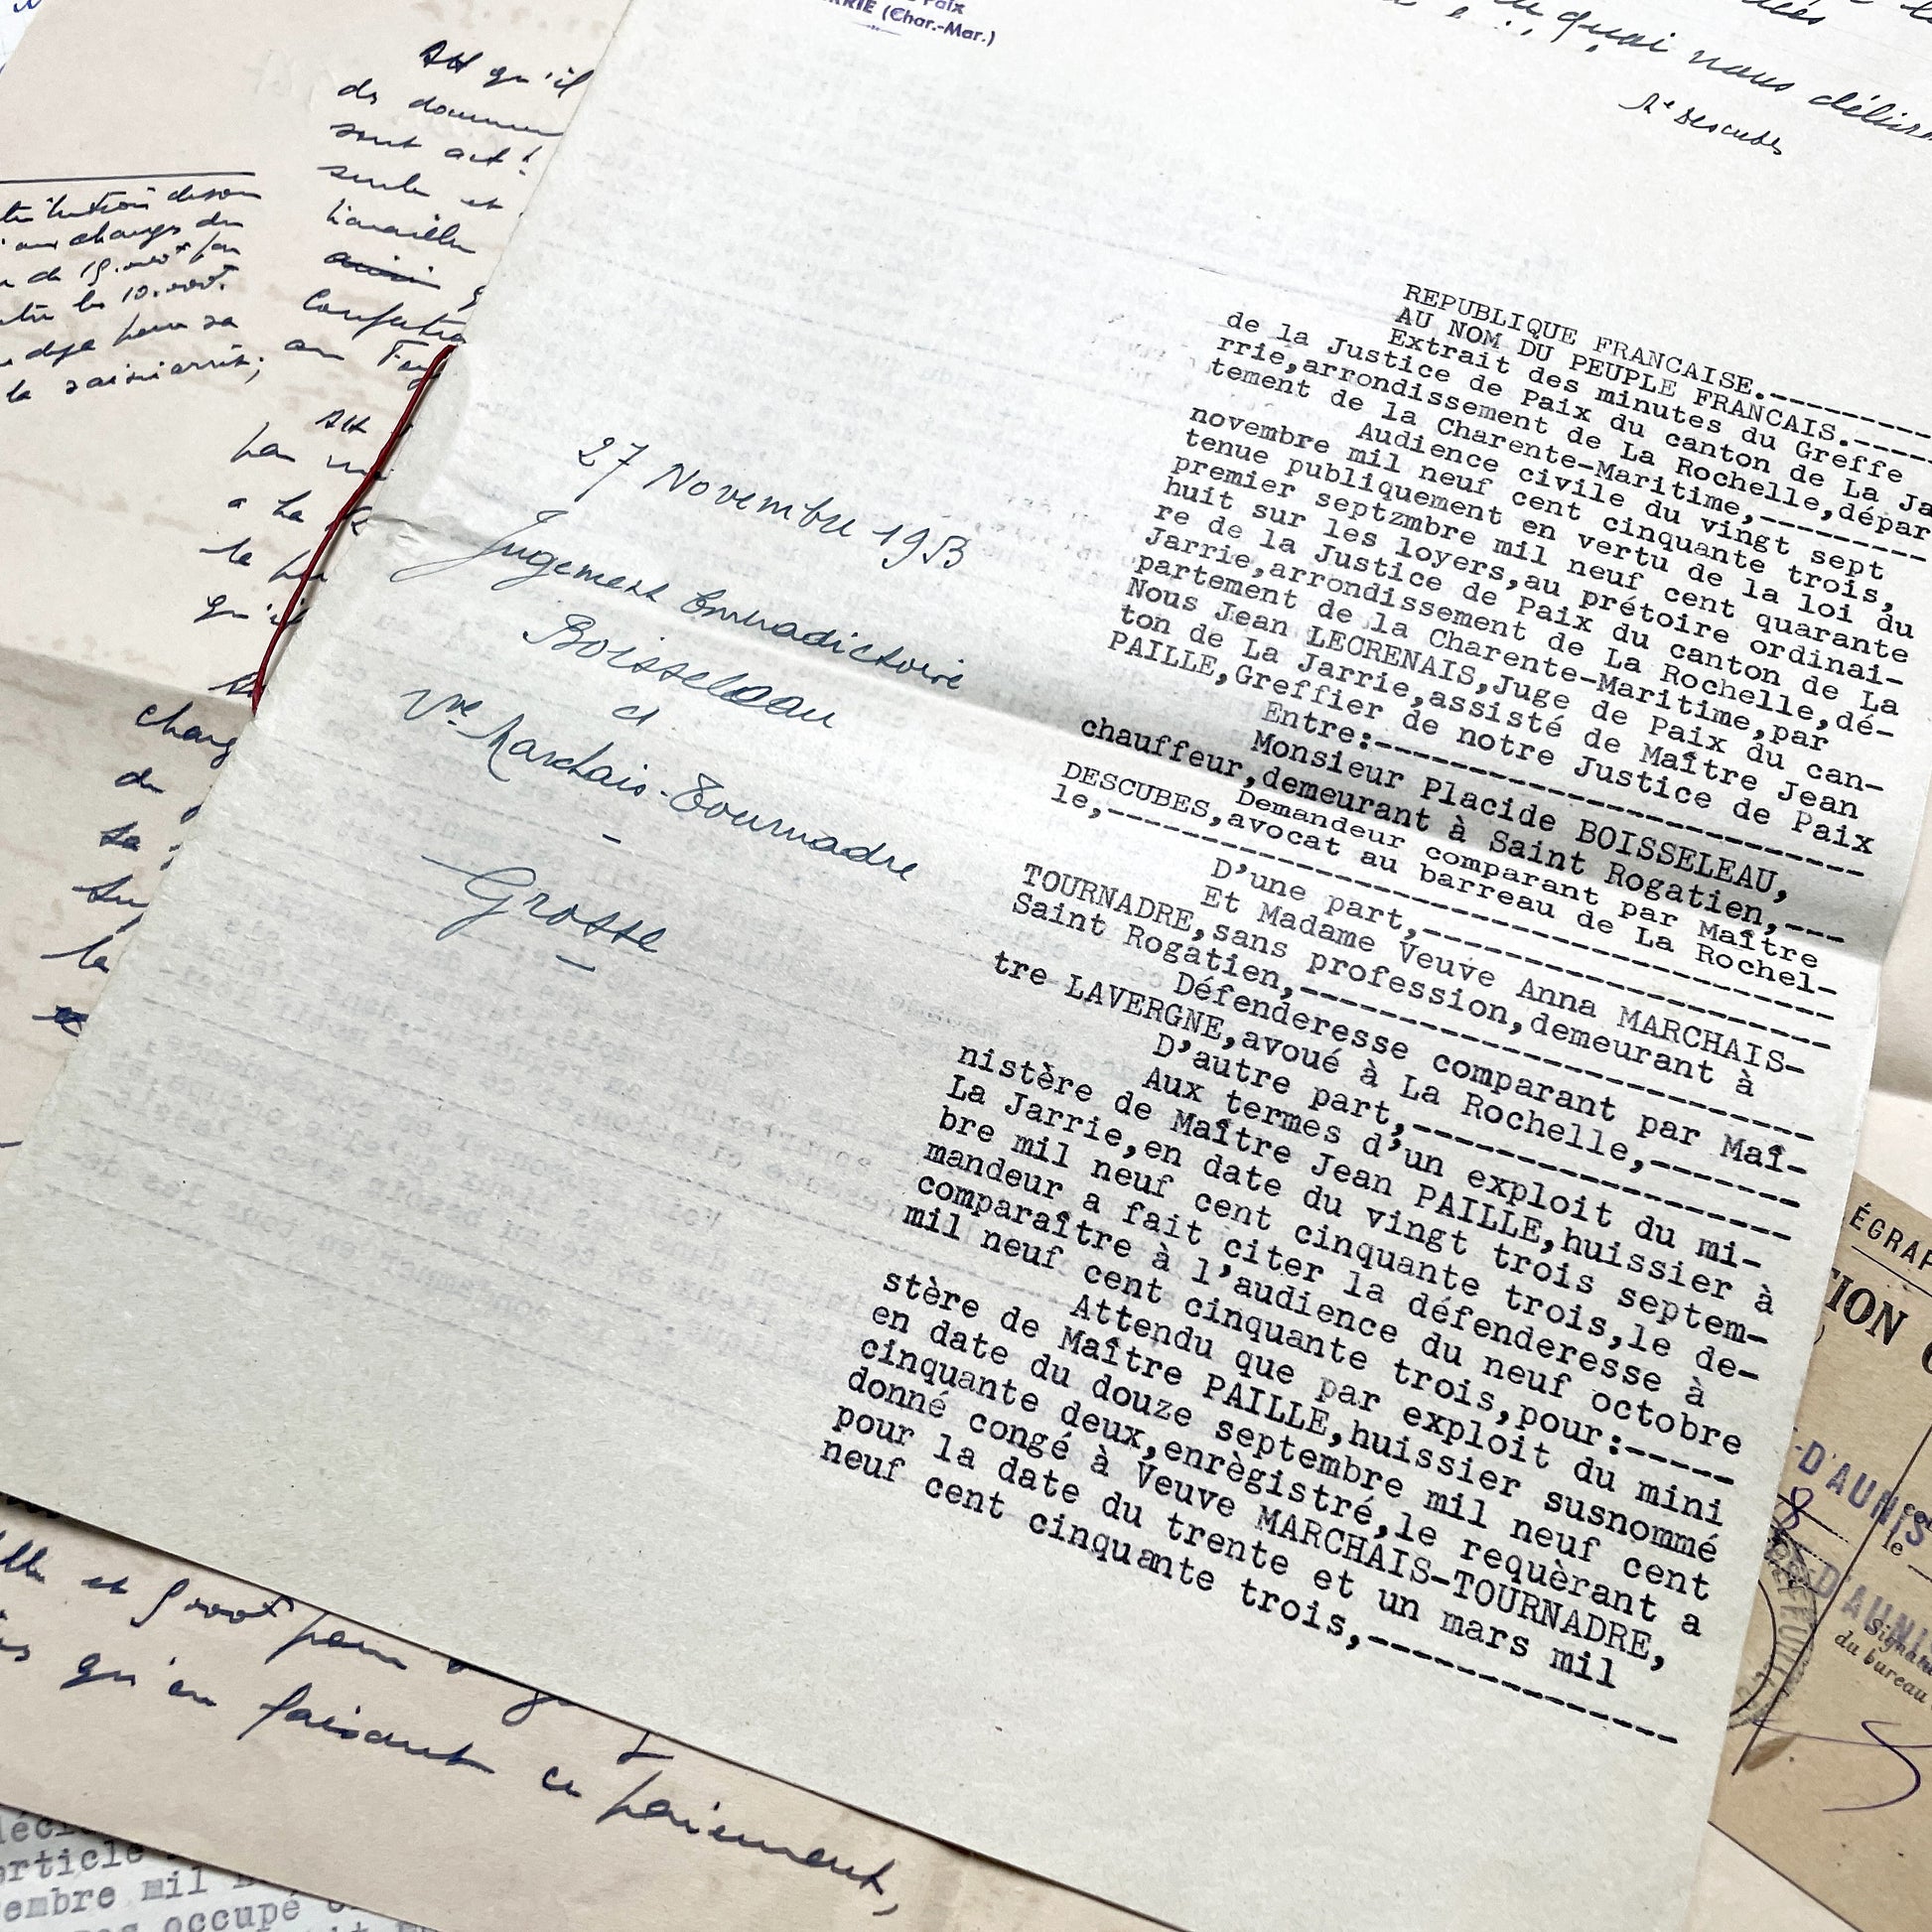 Paix
RRIE (Char.-Mar.)
quoi nous
Me Descubes
27 Novembre 1953
Jugement Contradictoire
Boisseleau
c/
Vve Marchais-Tournadre
-
Grosse
-
REPUBLIQUE FRANCAISE.-
AU NOM DU PEUPLE FRANCAIS.-
Extrait des minutes du Greffe
de la Justice de Paix du canton de La Ja
rrie,arrondissement de La Rochelle,dépar
tement de la Charente-Maritime,-
Audience civile du vingt sept
novembre mil neuf cent cinquante trois,
tenue publiquement en vertu de la loi du
premier septzmbre mil neuf cent quarante
huit sur les loyers,au prétoire ordinai-
re de la Justice de Paix du canton de La
Jarrie,arrondissement de La Rochelle,dé-
partement de la Charente-Maritime,par
Nous Jean LECRENAIS,Juge de Paix du can-
ton de La Jarrie,assisté de Maître Jean
PAILLE,Greffier de notre Justice de Paix
Entre:-
Monsieur Placide BOISSELEAU,
chauffeur,demeurant à Saint Rogatien,-
Demandeur comparant par Maître
DESCUBES,avocat au barreau de La Rochel-
le,-
D'une part,-
Et Madame Veuve Anna MARCHAIS-
TOURNADRE,sans profession,demeurant à
Saint Rogatien,-
Défenderesse comparant par Maî-
tre LAVERGNE,avoué à La Rochelle,-
D'autre part,-
Aux termes d'un exploit du mi-
nistère de Maître Jean PAILLE,huissier à
La Jarrie,en date du vingt trois septem-
bre mil neuf cent cinquante trois,le de-
mandeur a fait citer la défenderesse à
comparaître à l'audience du neuf octobre
mil neuf cent cinquante trois,pour:-
Attendu que par exploit du mini
stère de Maître PAILLE,huissier susnommé
en date du douze septembre mil neuf cent
cinquante deux,enrègistré,le requèrant a
donné congé à Veuve MARCHAIS-TOURNADRE,
pour la date du trente et un mars mil
neuf cent cinquante trois,-
qu'il
sont
charg
du
la
qu'en faisant ce paiement,
erticle
embre mil
occupé
ÉGRAP
TION
-D'AUNIS
le
D'AUNIS
Signa
du bureau